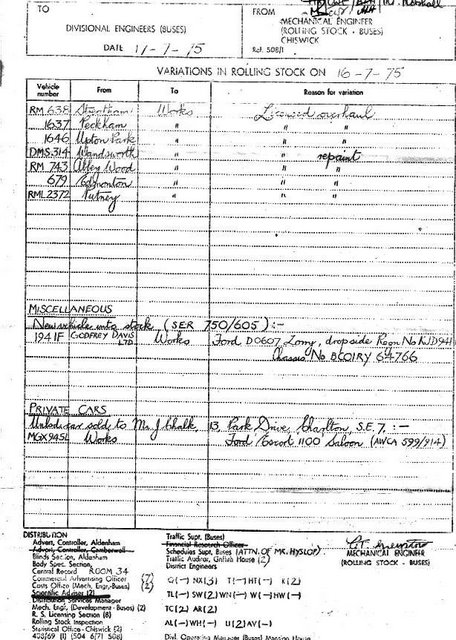 TO
DIVISIONAL ENGINEERS (BUSES)
DATE 17-7-75
FROM
MECHANICAL ENGINEER
(ROLLING STOCK - BUSES)
CHISWICK
Ref. 508/1
VARIATIONS IN ROLLING STOCK ON 16-7-75
Vehicle number From To Reason for variation
RM 638 Streatham Works Licensed overhaul
1637 Peckham " " "
1646 Upton Park " " "
DMS.314 Wandsworth " " repaint
RM 743 Abbey Wood " " "
679 Edmonton " " "
RML2372 Putney " " "
MISCELLANEOUS
New vehicle into stock (SER 750/605) :-
1941F GODFREY DAVIS LTD. Works Ford D0607 Lorry, dropside Regn No KJD941
Chassis No BCOIRY 64766
PRIVATE CARS
Unlicd car sold to Mr. J Chalk, 13, Park Drive, Charlton, S.E.7. :-
MGX945L Works Ford Escort 1100 Saloon (AWCA 599/914)
DISTRIBUTION
Advert, Controller, Aldenham
Advert, Controller, Camberwell
Blinds Section, Aldenham
Body Spec. Section,
Central Record ROOM 34
Commercial Advertising Officer (2)
Costs Office (Mech. Engr-Buses) (2)
Scientific Adviser (2)
Distribution Services Manager
Mech. Engr. (Development - Buses) (2)
R. S. Licensing Section (8)
Rolling Stock Inspection
Statistical Office - Chiswick (2)
408/69 (1) (504 6/71 508)
Traffic Supt. (Buses)
Financial Research Officer
Schedules Supt, Buses (ATTN. OF MR. HYSLOP)
Traffic Auditor, Griffith House (2)
District Engineers
G(-) NX(3) T(-) HT(-) K(2)
TL(-) SW(2) WN(-) W(-) HW(-)
TC(2) AR(2)
AL(-) WH(-) U(2) AV(-)
Divl. Operating Manager (Buses)
MECHANICAL ENGINEER
(ROLLING STOCK - BUSES)